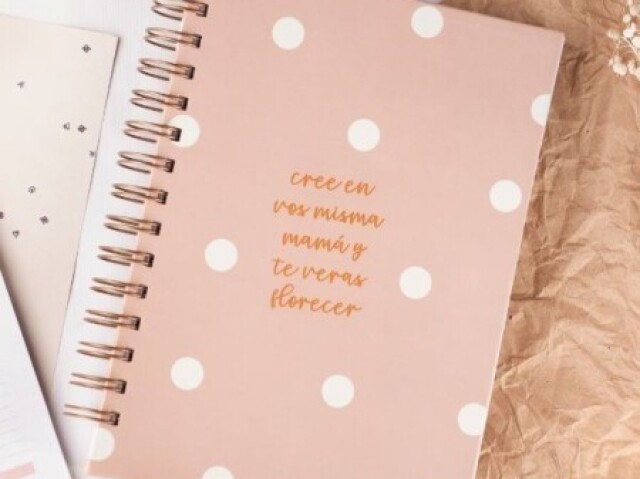 cree en
vos misma
mamá y
te veras
florecer